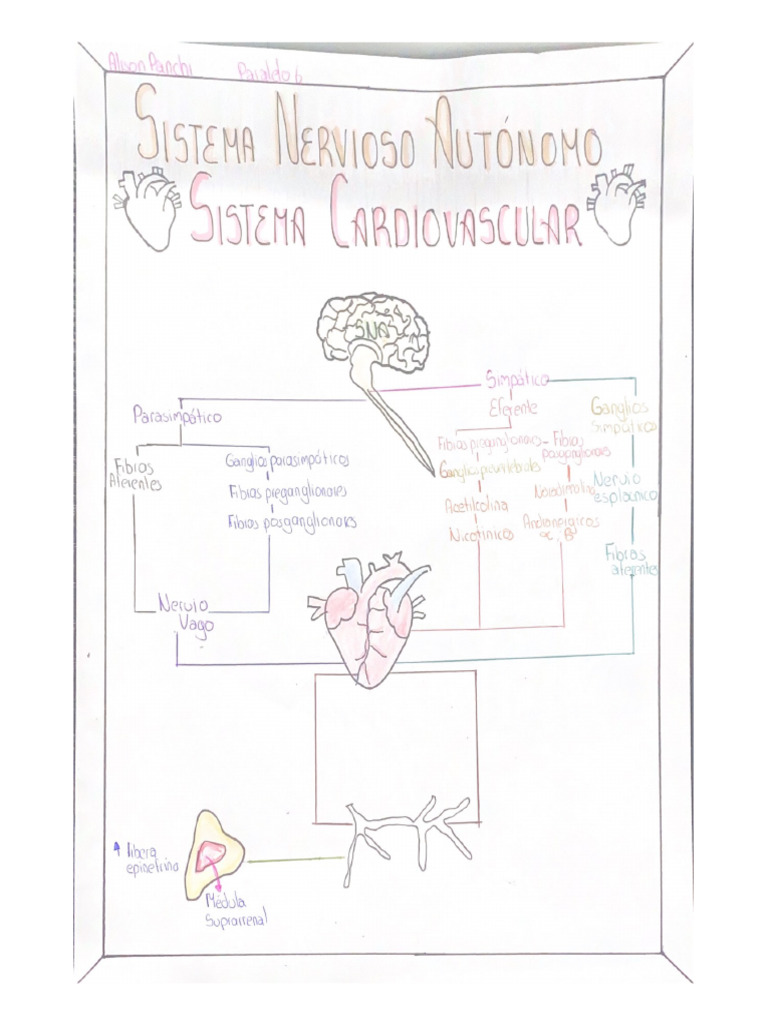 Alison Panchi Paralelo 6
SISTEMA NERVIOSO AUTÓNOMO
SISTEMA CARDIOVASCULAR
SNA
Simpático
Eferente
Parasimpático
Fibras
Aferentes
Ganglios parasimpáticos
Fibras preganglionares
Fibras posganglionares
Nervio
Vago
Fibras preganglionares
Ganglios prevertebrales
Acetilcolina
Nicotínicos
Fibras
posganglionares
Noradrenalina
Ganglios
Simpáticos
Nervio
esplácnico
Fibras
aferentes
Libera
epinefrina
Médula
Suprarrenal